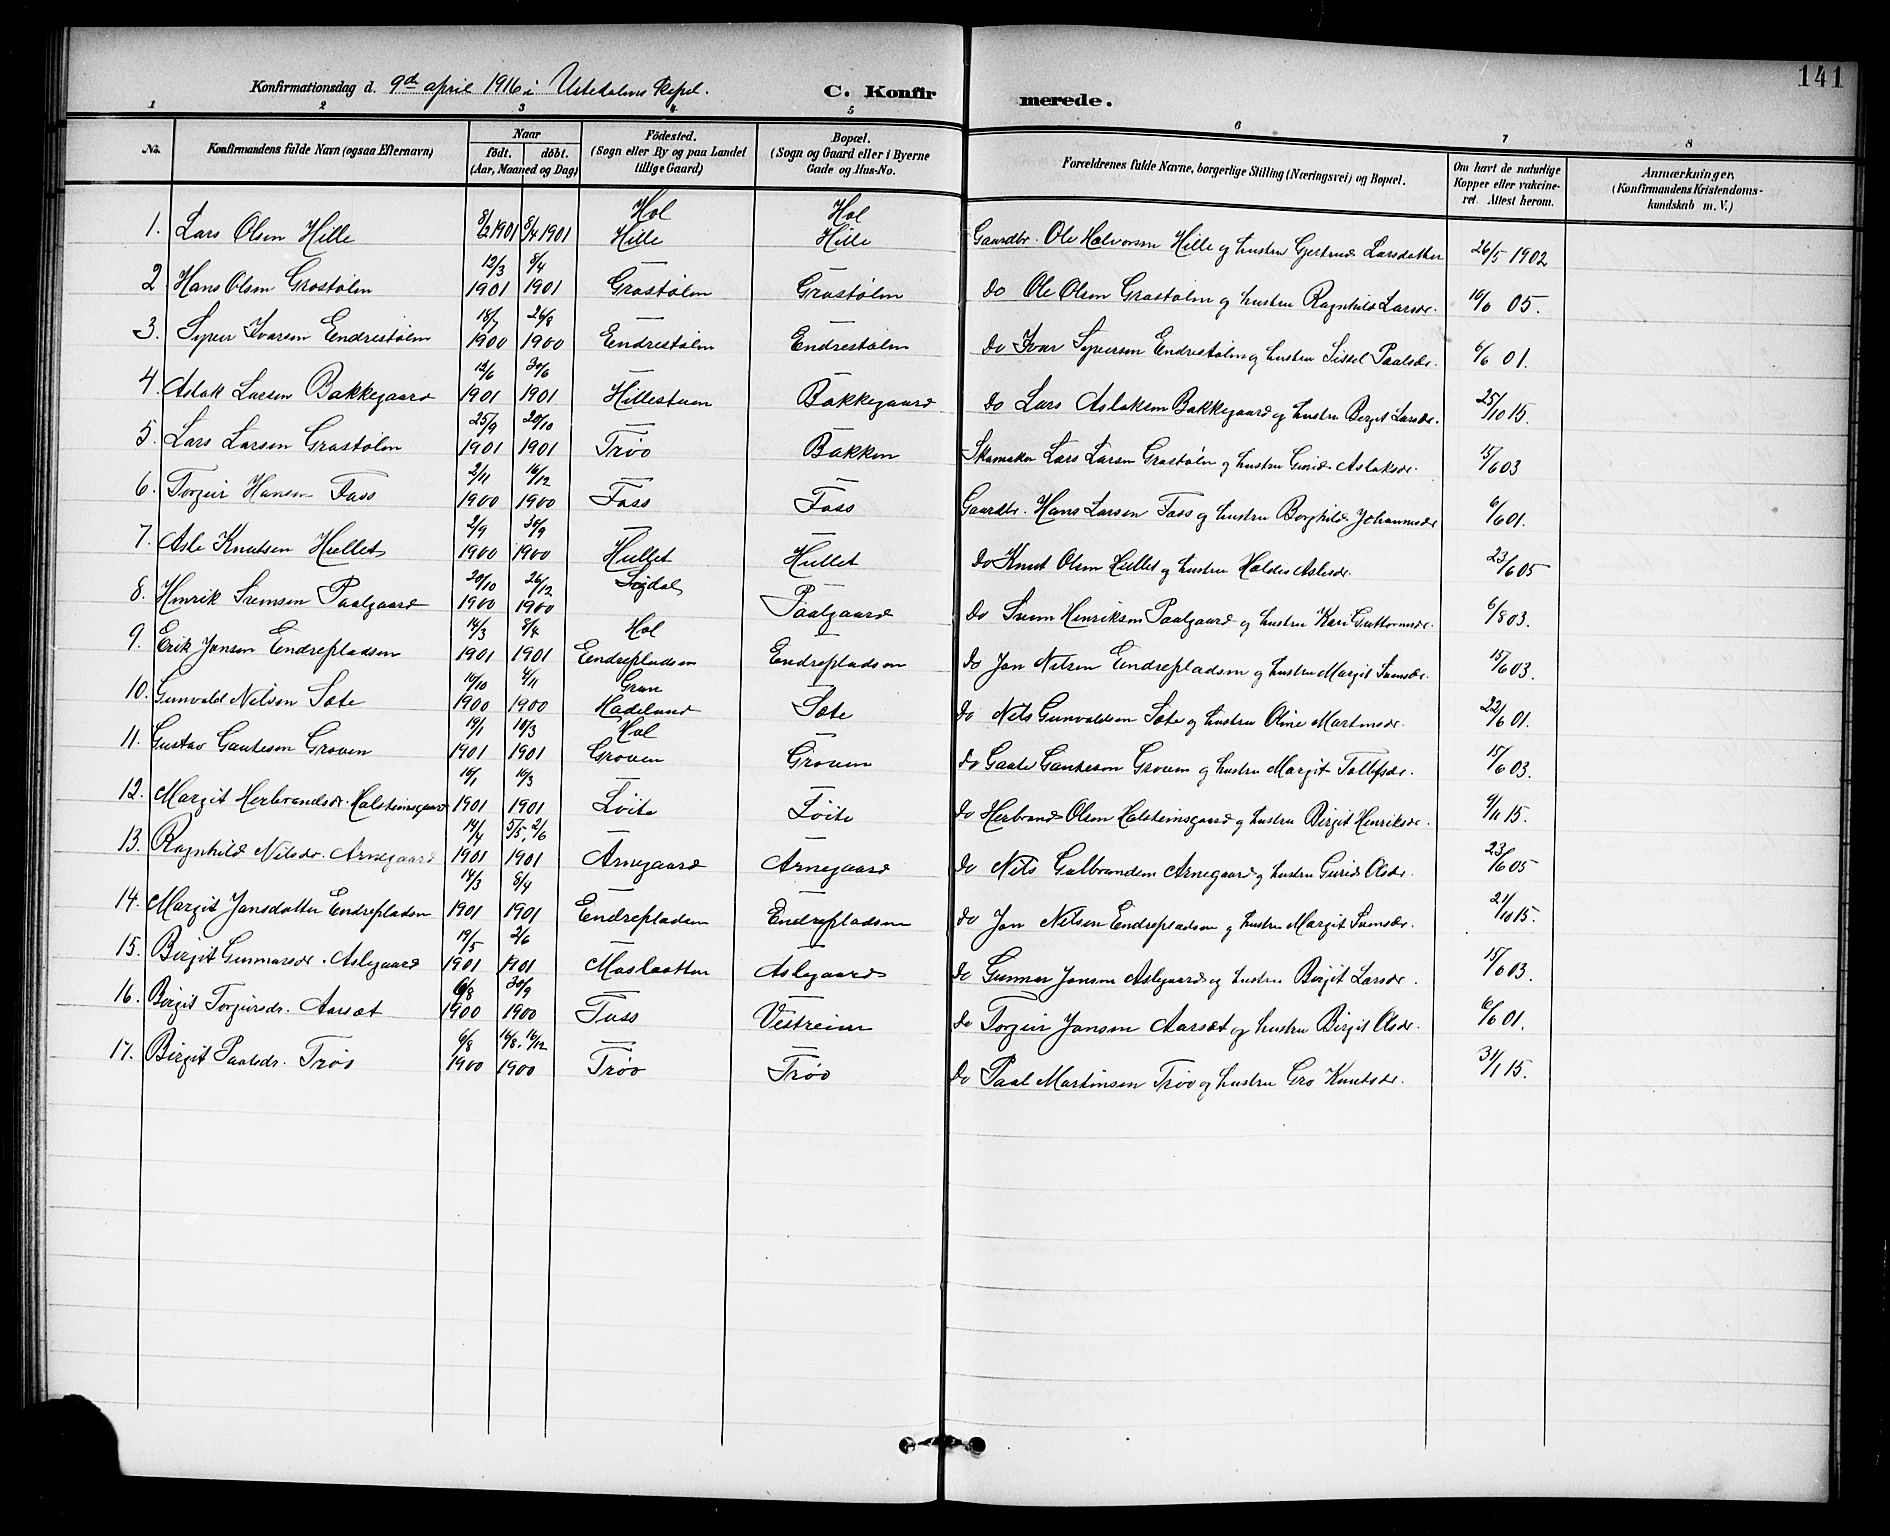 141
Konfirmationsdag d. 9de april 1916 i Ustedalens kapel. C. Konfirmerede.
1 2 3 4 5 6 7 8
No. Konfirmandens fulde Navn (ogsaa Efternavn) Naar födt. döbt. (Aar, Maaned og Dag) Födested. (Sogn eller By og paa Landet tillige Gaard) Bopæl. (Sogn og Gaard eller i Byerne Gade og Hus-No. Forældrenes fulde Navne, borgerlige Stilling (Næringsvei) og Bopæl. Om havt de naturlige Kopper eller vakcineret. Attest herom. Anmærkninger. (Konfirmandens Kristendomskundskab m. V.)
1. Lars Olsen Hille 8/2 1901 8/4 1901 Hol Hille Hol Hille Gaardbr. Ole Halvorsen Hille og hustru Gjertrud Larsdatter 26/5 1902
2 Hans Olsen Grøstølen 12/3 1901 8/4 1901 — Grøstølen — Grøstølen do Ole Olsen Grøstølen og hustru Ragnhild Larsdr. 05.
3. Syver Ivarsen Endrestølen 18/7 1900 26/8 1900 — Endrestølen — Endrestølen do Ivar Syversen Endrestølen og hustru Sissel Paalsdr. 6/6 01.
4. Aslak Larsen Bakkegaard 12/6 1901 30/6 1901 Hillestuen — Bakkegaard do Lars Aslaksen Bakkegaard og hustru Birgit Larsdr. 25/10 15.
5. Lars Larsen Grøstølen 25/9 1901 20/10 1901 — Trøo — Bakken Skomaker Lars Larsen Grøstølen og hustru Guri Aslaksdr. 15/6 03
6. Torgeir Hansen Foss 2/11 1900 16/12 1900 — Foss — Foss Gaardbr. Hans Larsen Foss og hustru Borghild Johannesdr 6/6 01.
7. Asle Knutsen Hullet 2/9 1900 30/9 1900 — Hullet — Hullet do Knut Olsen Hullet og hustru Haldis Aslesdr. 23/6 05
8. Henrik Svensen Paalgaard 20/10 1900 26/12 1900 Sigdal — Paalgaard do Svein Henriksen Paalgaard og hustru Kari Guttormsdr. 6/8 03.
9. Erik Jonsen Endrepladsen 14/3 1901 8/4 1901 Hol Endrepladsen — Endrepladsen do Jon Nilsen Endrepladsen og hustru Margit Svensdr. 15/6 03.
10. Gunvald Nilsen Sote 16/10 1900 4/11 1900 Gran Hadeland — Sote do Nils Gunvaldsen Sote og hustru Oline Martinsdr. 22/6 01.
11. Gustav Gautesen Groven 19/1 1901 10/3 1901 Hol Groven — Groven do Gaute Gautesen Groven og hustru Margit Tollefsdr. 15/6 03.
12. Margit Herbrandsdr. Holsteinsgaard 16/1 1901 10/3 1901 — Løite — Tøite do Herbrand Olsen Holsteinsgaard og hustru Birgit Henriksdr. 9/11 15.
13. Ragnhild Nilsdr. Arnegaard 14/4 1901 5/5, 2/6 1901 — Arnegaard — Arnegaard do Nils Gulbrandsen Arnegaard og hustru Guri Olsdr. 23/6 05
14. Margit Jonsdatter Endrepladsen 14/3 1901 8/4 1901 — Endrepladsen — Endrepladsen do Jon Nilsen Endrepladsen og hustru Margit Svensdr. 21/10 15.
15. Birgit Gunnarsdr. Aslegaard 19/5 1901 2/6 1901 — Moslaatten — Aslegaard do Gunnar Jonsen Aslegaard og hustru Birgit Larsdr. 15/6 03.
16. Birgit Torgeirsdr. Aarsæt 6/8 1900 30/9 1900 — Tuss — Vestreim do Torgeir Jonsen Aarsæt og hustru Birgit Olsdr. 6/6 01.
17. Birgit Paalsdr. Trøo 6/8 1900 16/8, 16/12 1900 — Trøo — Trøo do Paal Martinsen Trøo og hustru Gro Knutsdr. 31/1 15.